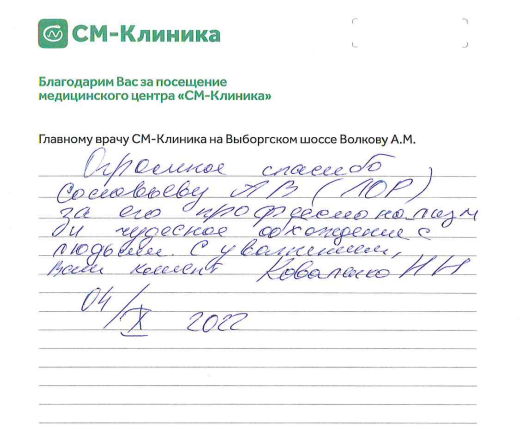 СМ-Клиника
Благодарим Вас за посещение
медицинского центра «СМ-Клиника»
Главному врачу СМ-Клиника на Выборгском шоссе Волкову А.М.
Огромное спасибо
Соловьеву АВ (ЛОР)
за его профессионализм
и чудесное обхождение с
людьми. С уважением,
Ваш клиент Коваленко Н Н
04/X 2022